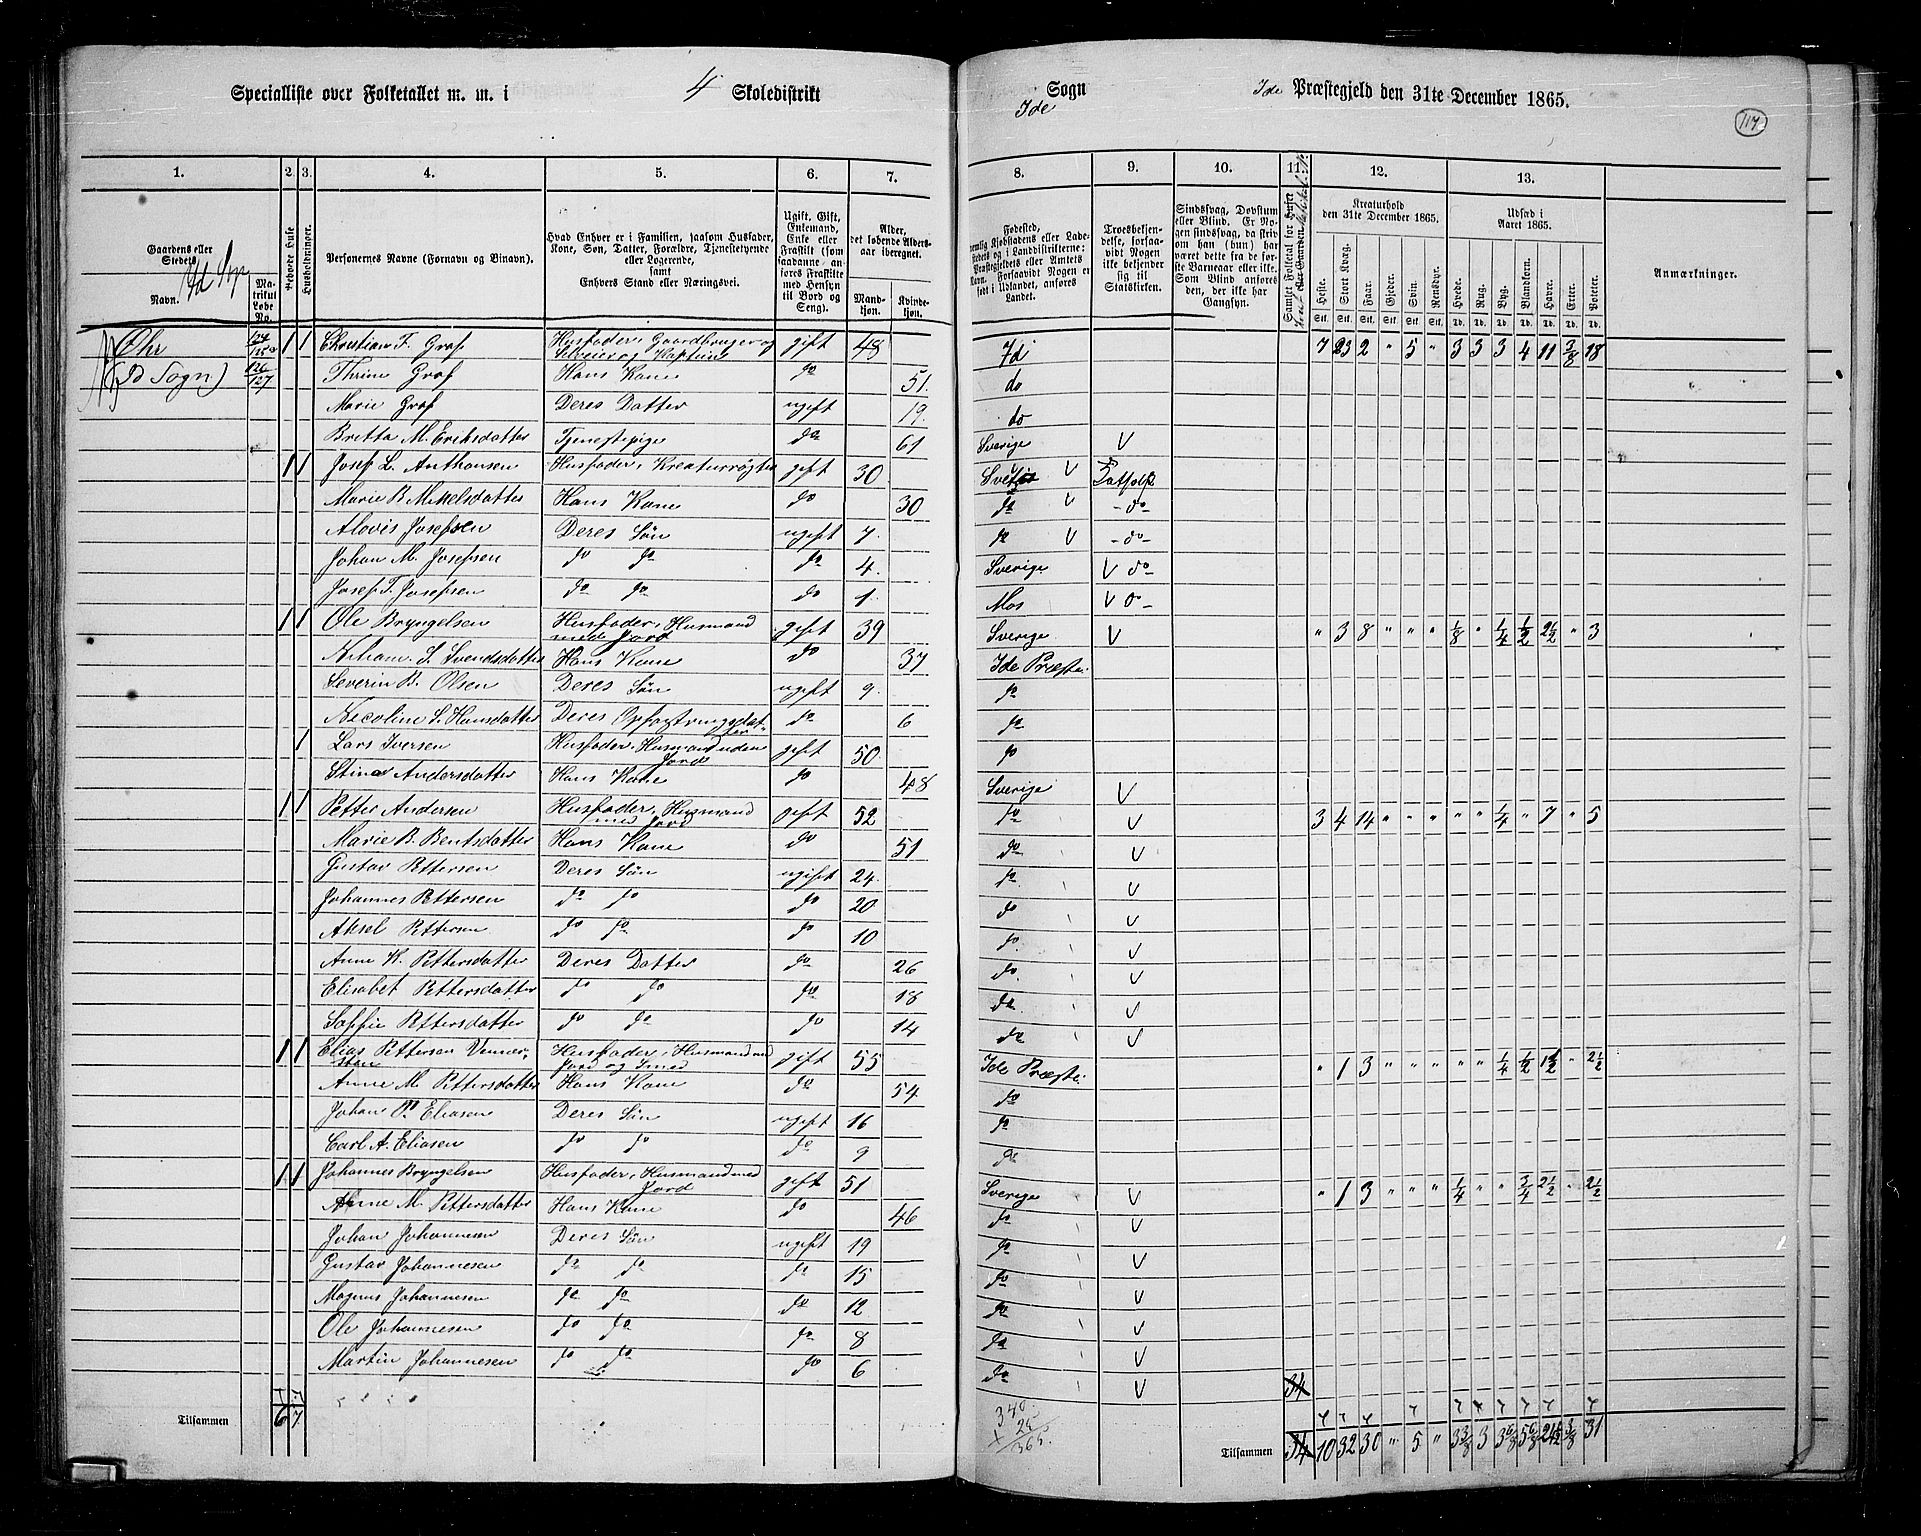 Specialliste over Folketallet m. m. i 4 Skoledistrikt Ide Sogn Ide Præstegjeld den 31te December 1865.
117
1. 2. 3. 4. 5. 6. 7. 8. 9. 10. 11. 12. 13.
Gaardens eller Stedets Navn.
Matrikul Løbe No.
Beboede Huse
Husholdninger.
Personernes Navne (Fornavn og Binavn).
Hvad Enhver er i Familien, saasom Husfader, Kone, Søn, Datter, Forældre, Tjenestetyende eller Logerende, samt Enhvers Stand eller Næringsvei.
Ugift, Gift, Enkemand, Enke eller Fraskilt (som saadanne anføres Fraskilte med Hensyn til Bord og Seng).
Alder, det løbende Aldersaar iberegnet.
Mandkjøn. Kvindekjøn.
Troesbekjendelse, forsaavidt Nogen ikke bekjender sig til Statskirken.
Sindssvag, Døvstum eller Blind. Er Nogen sindssvag, da skriv om han (hun) har været det fra de første Barneaar eller ikke. Som Blind anføres den, der ikke har Gangsyn.
Kreaturhold den 31te December 1865.
Heste. Stort Kvæg. Faar. Gjeder. Svin. Rensdyr.
Udsæd i Aaret 1865.
Hvede. Rug. Byg. Blandkorn. Havre. Erter. Poteter.
Anmærkninger.
Ohr 124 125a 1 1 Christian F. Graf Husfader, Gaardbruger og Kaptein gift 48 Ide 7 23 2 " 5 " 3 3 3 4 11 3/8 18
126 127 Thrine Graf Hans Kone do 51 do
Marie Graf Deres Datter ugift 19 do
Britta M. Eriksdatter Tjenestepige do 61 Sverige V
1 1 Josef L. Anthonsen Husfader, Kreaturrøgter gift 30 V
Marie B. Mikelsdatter Hans Kone do 30 do V - do -
Alovis Josefsen Deres Søn ugift 7 do V - do -
Johan M. Josefsen do do do 4 Sverige V do -
Josef T. Josefsen do do do 1 Mos V
1 1 Ole Bryngelsen Husfader, Husmand med Jord gift 39 Sverige V " 3 8 " " " 1/8 " 1/4 1/2 2 1/2 " 3
S. Svendsdatter Hans Kone do 37 Ide Præste.
Severin B. Olsen Deres Søn ugift 9 do
Nicoline S. Hansdatter Deres Opfostringsdatter do 6 do
1 Lars Iversen Husfader, Husmand uden Jord gift 50 do
Stina Andersdatter Hans Kone do 48 Sverige V
1 1 Petter Andersen Husfader, Husmand med Jord gift 52 do V 3 4 14 " " " " " 1/4 " 7 " 5
Marie B. Bentsdatter Hans Kone do 51 do V
Gustav Pettersen Deres Søn ugift 24 do V
Johannes Pettersen do do do 20 do V
Aksel Pettersen do do do 10 do V
Anne K. Pettersdatter Deres Datter do 26 do V
Elisabet Pettersdatter do do do 18 do V
Soffie Pettersdatter do do do 14 do V
1 1 Elias Pettersen Husfader, Husmand med Jord og Smed gift 55 Ide Præste. " 1 3 " " " " " 1/4 1/2 1 1/2 " 2 1/2
Anne M. Pettersdatter Hans Kone do 54 do
Johan P. Eliasen Deres Søn ugift 16 do
Carl A. Eliasen do do do 9 do
1 1 Johannes Bryngelsen Husfader, Husmand med Jord gift 51 Sverige V " 1 3 " " " 1/4 " " 3/4 2 1/2 " 2 1/2
Anne M. Pettersdatter Hans Kone do 46 do V
Johan Johannesen Deres Søn ugift 19 do V
Gustav Johannesen do do do 15 do V
Magnus Johannesen do do do 12 do V
Ole Johannesen do do do 8 do V
Martin Johannesen do do do 6 do V
34
340
25
365.
Tilsammen 6 7 Tilsammen 34 10 32 30 " 5 " 3 3/8 3 3 6/8 5 6/8 3/8 31